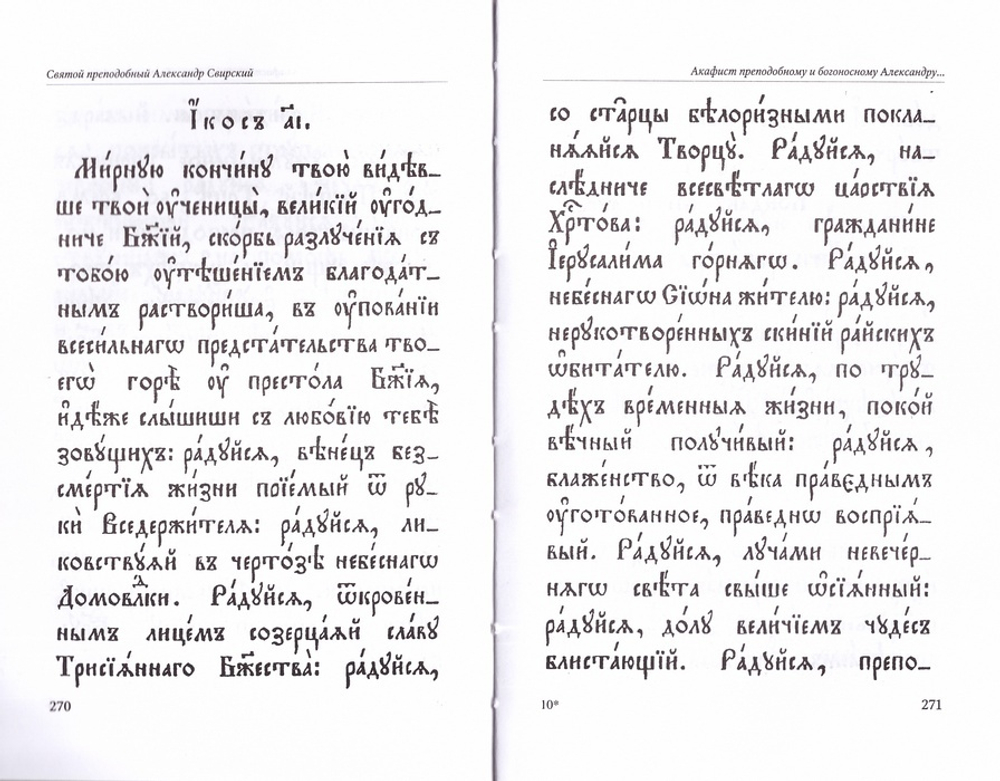 Святой преподобный Александр Свирский
І҆́косъ а҃і.
Ми́рную кончи́ну твою̀ ви́дѣв_
ше твои̑ ᲂу҆ченицы, вели́кїй ᲂу҆го́д_
ниче Бж҃їй, ско́рбь разлуче́нїѧ съ
тобо́ю ᲂу҆тѣше́нїемъ благода́т_
нымъ раствори́ша, въ ᲂу҆пова́нїи
всеси́льнагѡ предста́тельства тво_
егѡ̀ горѣ̀ ᲂу҆ престо́ла Бж҃їѧ,
и҆дѣ́же слы́шиши съ любо́вїю тебѣ̀
зову́щихъ: ра́дꙋйсѧ, вѣне́цъ без_
сме́ртїѧ жи́зни поїе́мый ѿ рꙋ_
кѝ Вседержи́телѧ: ра́дꙋйсѧ, ли_
ковствꙋ́ѧй въ черто́зѣ небе́снагѡ
Домовⷧ҇ки. Ра́дꙋйсѧ, ѿкрове́н_
нымъ лице́мъ созерца́ѧй сла́вꙋ
Трисїѧ́ннаго Бж҃ества̀: ра́дꙋйсѧ,
270
Акафист преподобному и богоносному Александру...
со ста́рцы бѣлори́зными покла_
нѧ́ѧйсѧ Творцꙋ̀. Ра́дꙋйсѧ, на_
слѣ́дниче всесвѣ́тлагѡ ца́рствїѧ
Хрⷭ҇то́ва: ра́дꙋйсѧ, граждани́не
І҆ерꙋсали́ма го́рнѧгѡ. Ра́дꙋйсѧ,
небе́снагѡ Сїѡ́на жи́телю: ра́дꙋйсѧ,
нерꙋкотворе́нныхъ ски́нїй ра́йскихъ
ѡ҆бита́телю. Ра́дꙋйсѧ, по трꙋ_
дѣ́хъ вре́менныѧ жи́зни, поко́й
вѣ́чный полꙋчи́вый: ра́дꙋйсѧ,
блаже́нство, ѿ вѣ́ка пра́вєднымъ
ᲂу҆гото́ванное, пра́веднѡ воспрїѧ́_
вый. Ра́дꙋйсѧ, лꙋча́ми невече́р_
нѧгѡ свѣ́та свы́ше ѡ҆сїѧ́нный:
ра́дꙋйсѧ, до́лꙋ вели́чїемъ чꙋде́съ
блиста́ющїй. Ра́дꙋйсѧ, препо_
10*
271